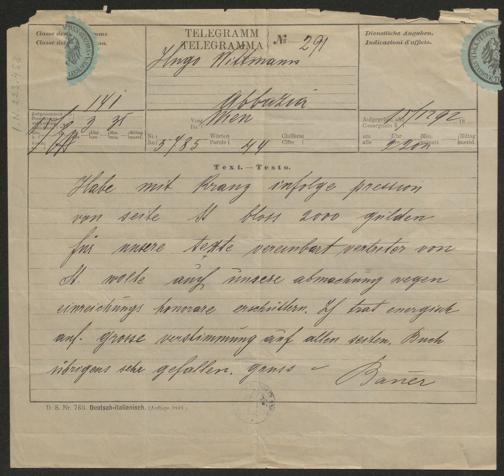 Classe des
Classe de
TELEGRAMM
TELEGRAMMA
№ 291
Dienstliche Angaben.
Indicazioni d'ufficio.
Hugo Wittmann
141
Abbazia
Wien
3 35
15/12 92
5785
Worten
Parole
44
Chiffern
Cifre
Text. — Testo.
Habe mit Kranz infolge pression
von seite St bloss 2000 gulden
für unsere texte vereinbart vertreter von
St. wolte auch unsere abmachung wegen
einreichungs honorare erschüttern. Ich trat energisch
auf. Grosse verstimmung auf allen seiten. Buch
übrigens sehr gefallen. gruss —
Bauer
D. S. Nr. 760. Deutsch-italienisch. (Auflage 1891.)